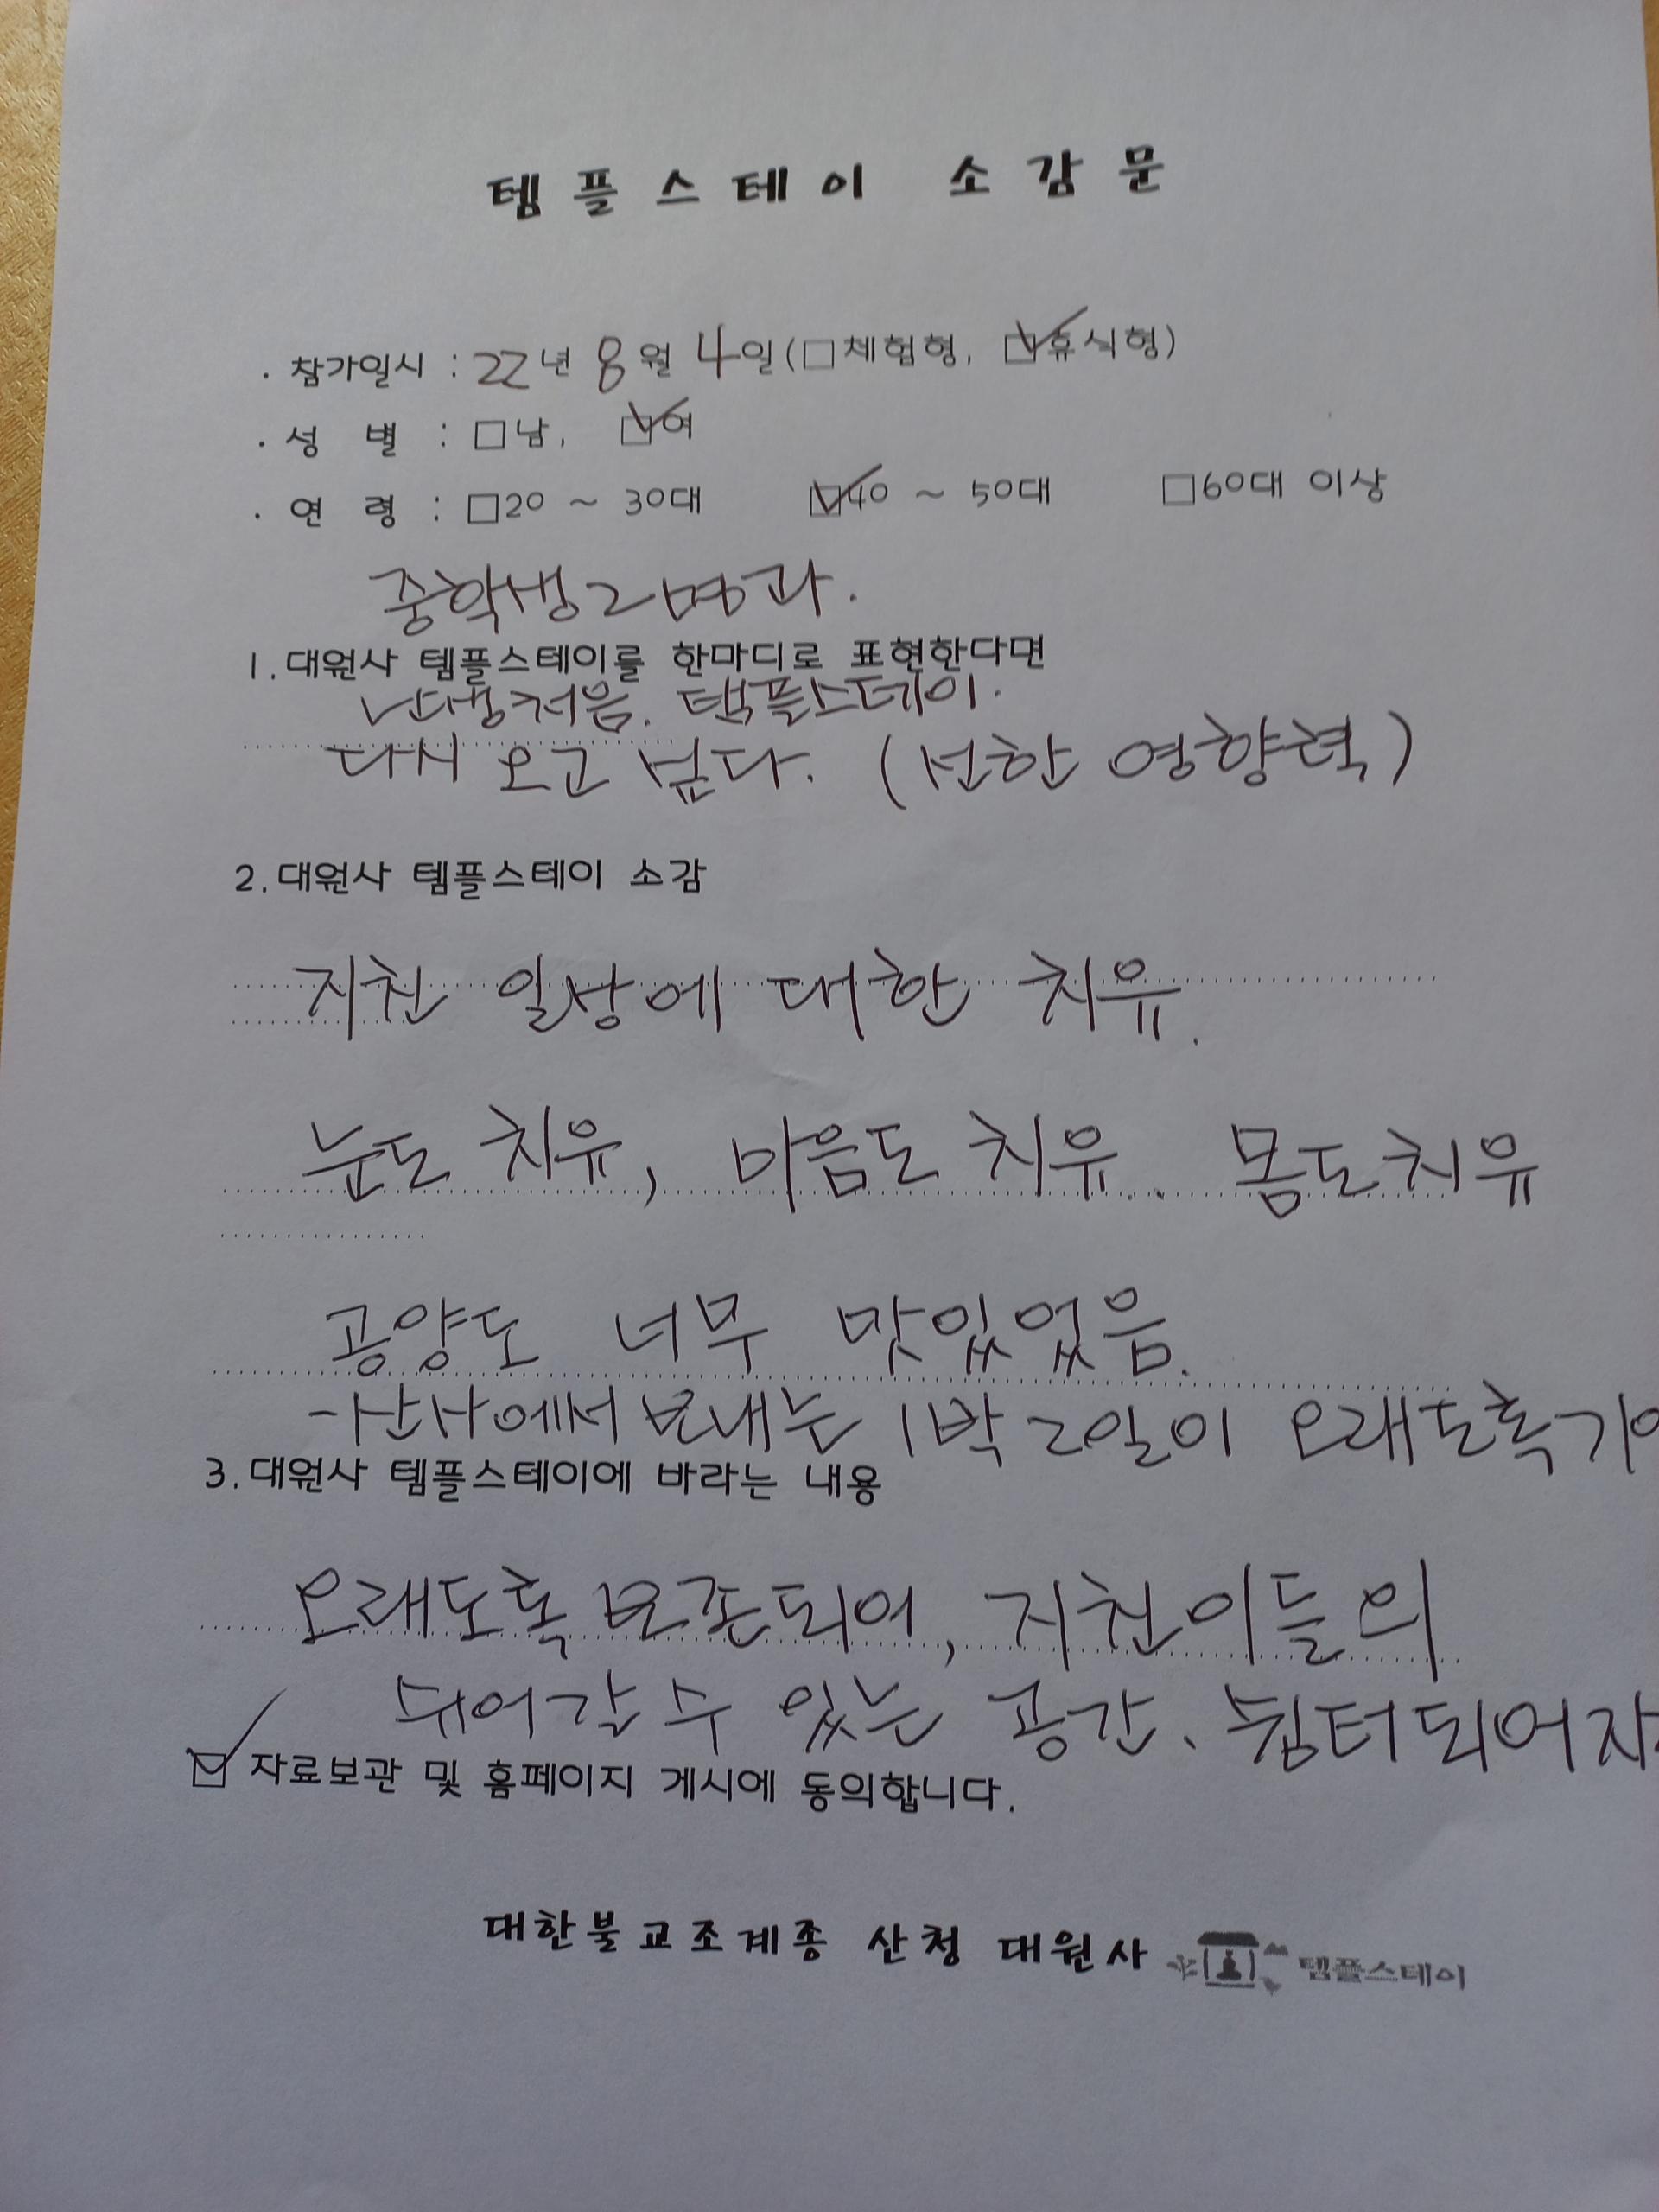 템플스테이 소감문
· 참가일시 : 22년 8월 4일(□체험형, ☑휴식형)
· 성 별 : □남, ☑여
· 연 령 : □20 ~ 30대 ☑40 ~ 50대 □60대 이상
중학생 2명과.
1. 대원사 템플스테이를 한마디로 표현한다면
난생처음. 템플스테이.
다시 오고 싶다. (선한 영향력)
2. 대원사 템플스테이 소감
지친 일상에 대한 치유.
눈도 치유, 마음도 치유. 몸도치유
공양도 너무 맛있었음.
-산사에서 보내는 1박 2일이 오래도록 기억
3. 대원사 템플스테이에 바라는 내용
오래도록 보존되어, 지친이들의
쉬어갈 수 있는 공간. 쉼터되어
☑ 자료보관 및 홈페이지 게시에 동의합니다.
대한불교조계종 산청 대원사 템플스테이